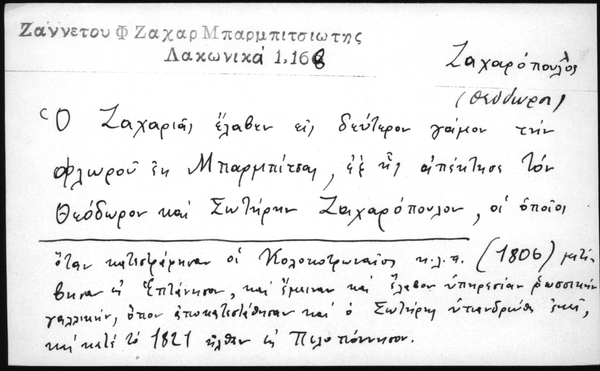 Ζαννέτου Φ Ζαχαρ Μπαρμπιτσιώτης
Λακωνικά 1.168
Ζαχαρόπουλος
(Θεόδωρος)
Ὁ Ζαχαριᾶς ἔλαβεν εἰς δεύτερον γάμον τὴν
Φλωροῦ ἐκ Μπαρμπίτσας, ἐξ ἧς ἀπέκτησε τὸν
Θεόδωρον καὶ Σωτήρην Ζαχαρόπουλον, οἱ ὁποῖοι
ὅταν κατεστράφησαν οἱ Κολοκοτρωναῖοι κ.λ.π. (1806) μετέ-
βησαν εἰς Ἑπτάνησον, καὶ ἔμειναν καὶ ἔλαβον ὑπηρεσίαν ῥωσσικὴν
γαλλικήν, ὅπου ἀποκατεστάθησαν καὶ ὁ Σωτήρης ὑπανδρεύθη ἐκεῖ,
καὶ κατὰ τὸ 1821 ἦλθαν εἰς Πελοπόννησον.